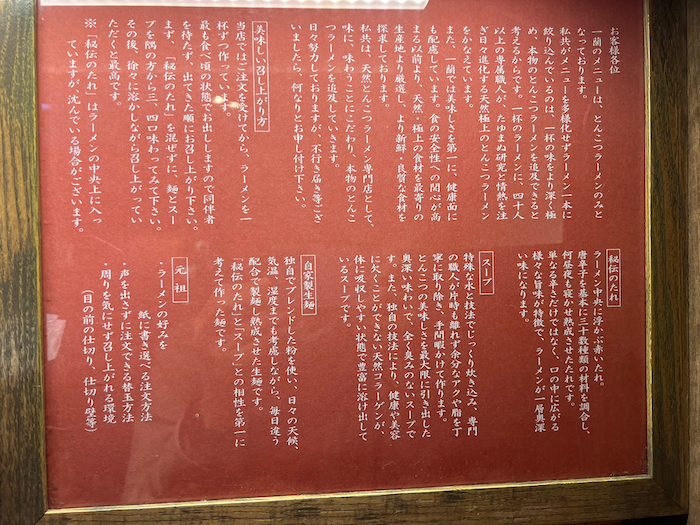 お客様各位
一蘭のメニューは、とんこつラーメンのみと
なっております。
私共がメニューを多様化せずラーメン一本に
絞り込んでいるのは、一杯の味をより深く極
め、本物のとんこつラーメンを追及できると
考えるからです。一杯のラーメンに、四十人
以上の専属職人が、たゆまぬ研究と情熱を注
ぎ日々進化する天然極上のとんこつラーメン
をかなえています。
また、一蘭では美味しさを第一に、健康面に
も配慮しています。食の安全性への関心が高
まる以前より、天然・極上の食材を最寄りの
生産地より厳選し、より新鮮・良質な食材を
探求しております。
私共は、天然とんこつラーメン専門店として、
味に、味わうことにこだわり、本物のとんこ
つラーメンを追及していきます。
日々努力しておりますが、不行き届き等ござ
いましたら、何なりとお申し付け下さい。
美味しい召し上がり方
当店ではご注文を受けてから、ラーメンを一
杯ずつ作っています。
最も食べ頃の状態でお出ししますので同伴者
を待たず、出てきた順にお召し上がり下さい。
まず、「秘伝のたれ」を混ぜずに、麺とスー
プを隅の方から三、四口味わってみて下さい。
その後、徐々に溶かしながら召し上がってい
ただくと最高です。
※「秘伝のたれ」はラーメンの中央上に入っ
ていますが、沈んでいる場合がございます。
秘伝のたれ
ラーメン中央に浮かぶ赤いたれ。
唐辛子を基本に三十数種類の材料を調合し、
何昼夜も寝かせ熟成させたたれです。
単なる辛さだけではなく、口の中に広がる
様々な旨味が特徴で、ラーメンが一層奥深
い味になります。
スープ
特殊な水と技法でじっくり炊き込み、専門
の職人が片時も離れず余分なアクや脂を丁
寧に取り除き、手間暇かけて作ります。
とんこつの美味しさを最大限に引き出した
奥深い味わいで、全く臭みのないスープで
す。また、独自の技法により、健康や美容
に欠くことができない天然コラーゲンが、
体に吸収しやすい状態で豊富に溶け出して
いるスープです。
自家製生麺
独自でブレンドした粉を使い、日々の天候、
気温、湿度までも考慮しながら、毎日違う
配合で製麺し熟成させた生麺です。
「秘伝のたれ」と「スープ」との相性を第一に
考えて作った麺です。
元祖
・ラーメンの好みを
紙に書き選べる注文方法
・声を出さずに注文できる替玉方法
・周りを気にせず召し上がれる環境
（目の前の仕切り、仕切り壁等）